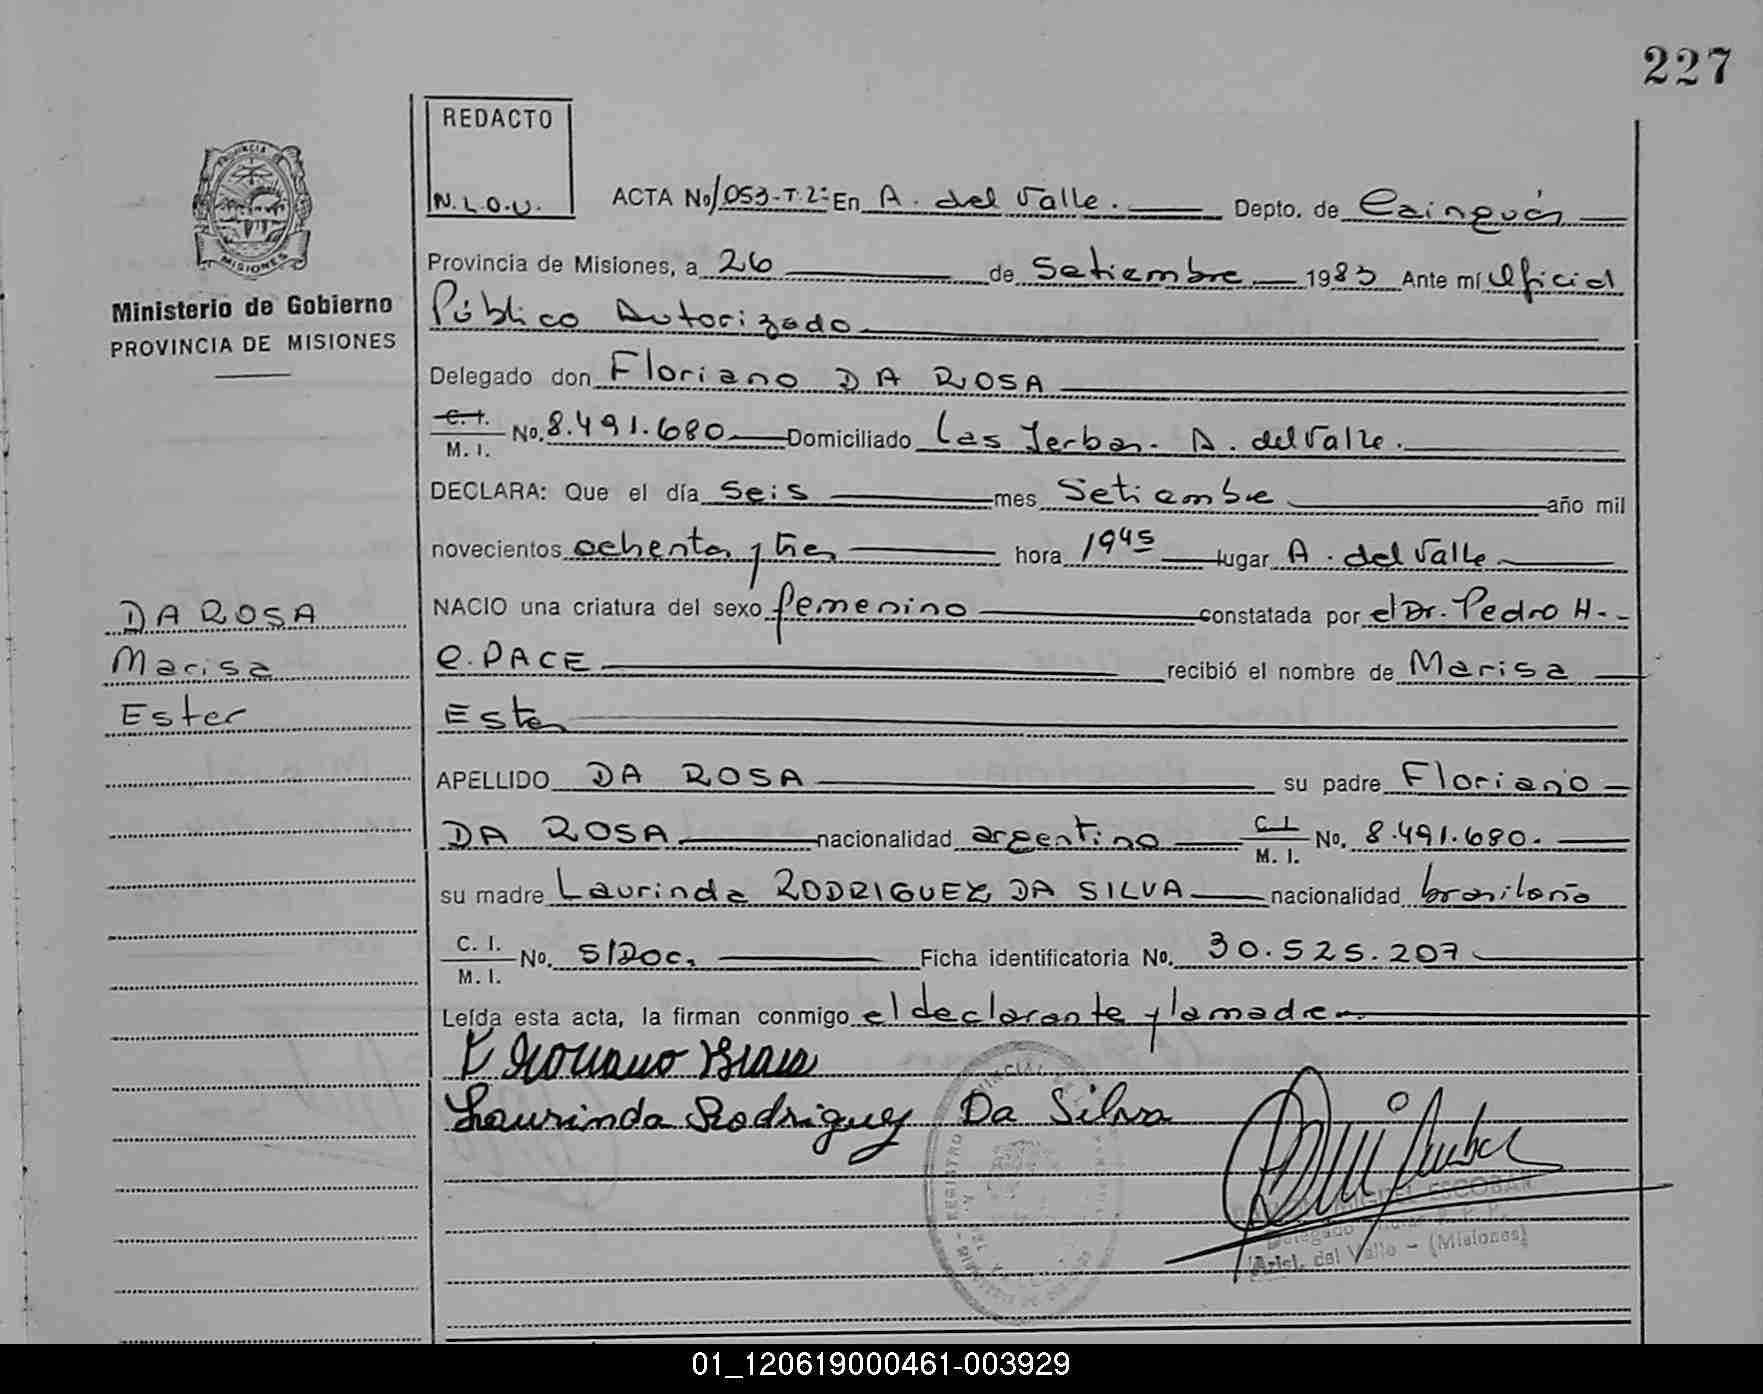 227
REDACTO
N.L.O.U.
PROVINCIA DE
MISIONES
Ministerio de Gobierno
PROVINCIA DE MISIONES
ACTA No/053-T.2- En A. del Valle. Depto. de Cainguás
Provincia de Misiones, a 26 de Setiembre 1983 Ante mí Oficial
Público Autorizado
Delegado don Floriano DA ROSA
C. I.
M. I. No. 8.491.680 Domiciliado Las Yerbas - A. del Valle.
DECLARA: Que el día Seis mes Setiembre año mil
novecientos ochenta y tres hora 1945 lugar A. del Valle
NACIO una criatura del sexo femenino constatada por el Dr. Pedro H.-
e. PACE recibió el nombre de Marisa
Ester
APELLIDO DA ROSA su padre Floriano
DA ROSA nacionalidad argentino C.I. M. I. No. 8.491.680.
su madre Laurinda RODRIGUEZ DA SILVA nacionalidad brasileña
C. I.
M. I. No. S/Doc. Ficha identificatoria No. 30.525.207
Leída esta acta, la firman conmigo el declarante y la madre
DA ROSA
Marisa
Ester
Laurinda Rodriguez Da Silva
MIGUEL ESCOBAR
Delegado
Arist. del Valle - (Misiones)
01_120619000461-003929